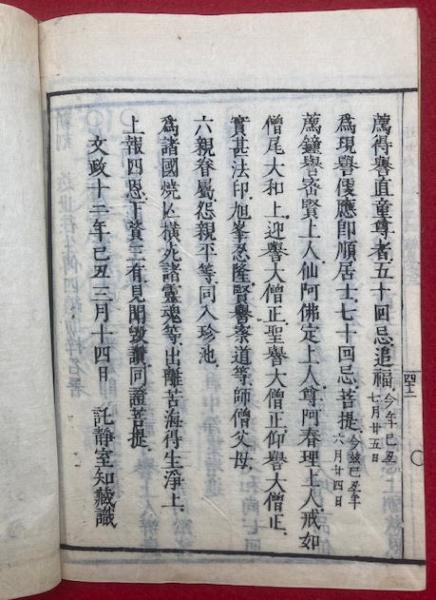 薦得譽直童尊者五十回忌追福 今年己丑七月廿五日
為現譽俊應即順居士七十回忌菩提 今玆己丑年六月廿四日
薦鐘譽密賢上人仙阿佛定上人尊阿春理上人戒如
僧尾大和上迎譽大僧正聖譽大僧正仰譽大僧正
實甚法印旭峯忍隆賢譽察道等師僧父母
六親眷屬怨親平等同入珍池
為諸國燒亾橫死諸靈魂等出離苦海得生淨土
上報四恩下資三有見聞毀讚同證菩提
文政十二年己丑三月十四日　託靜室知藏識
四十二